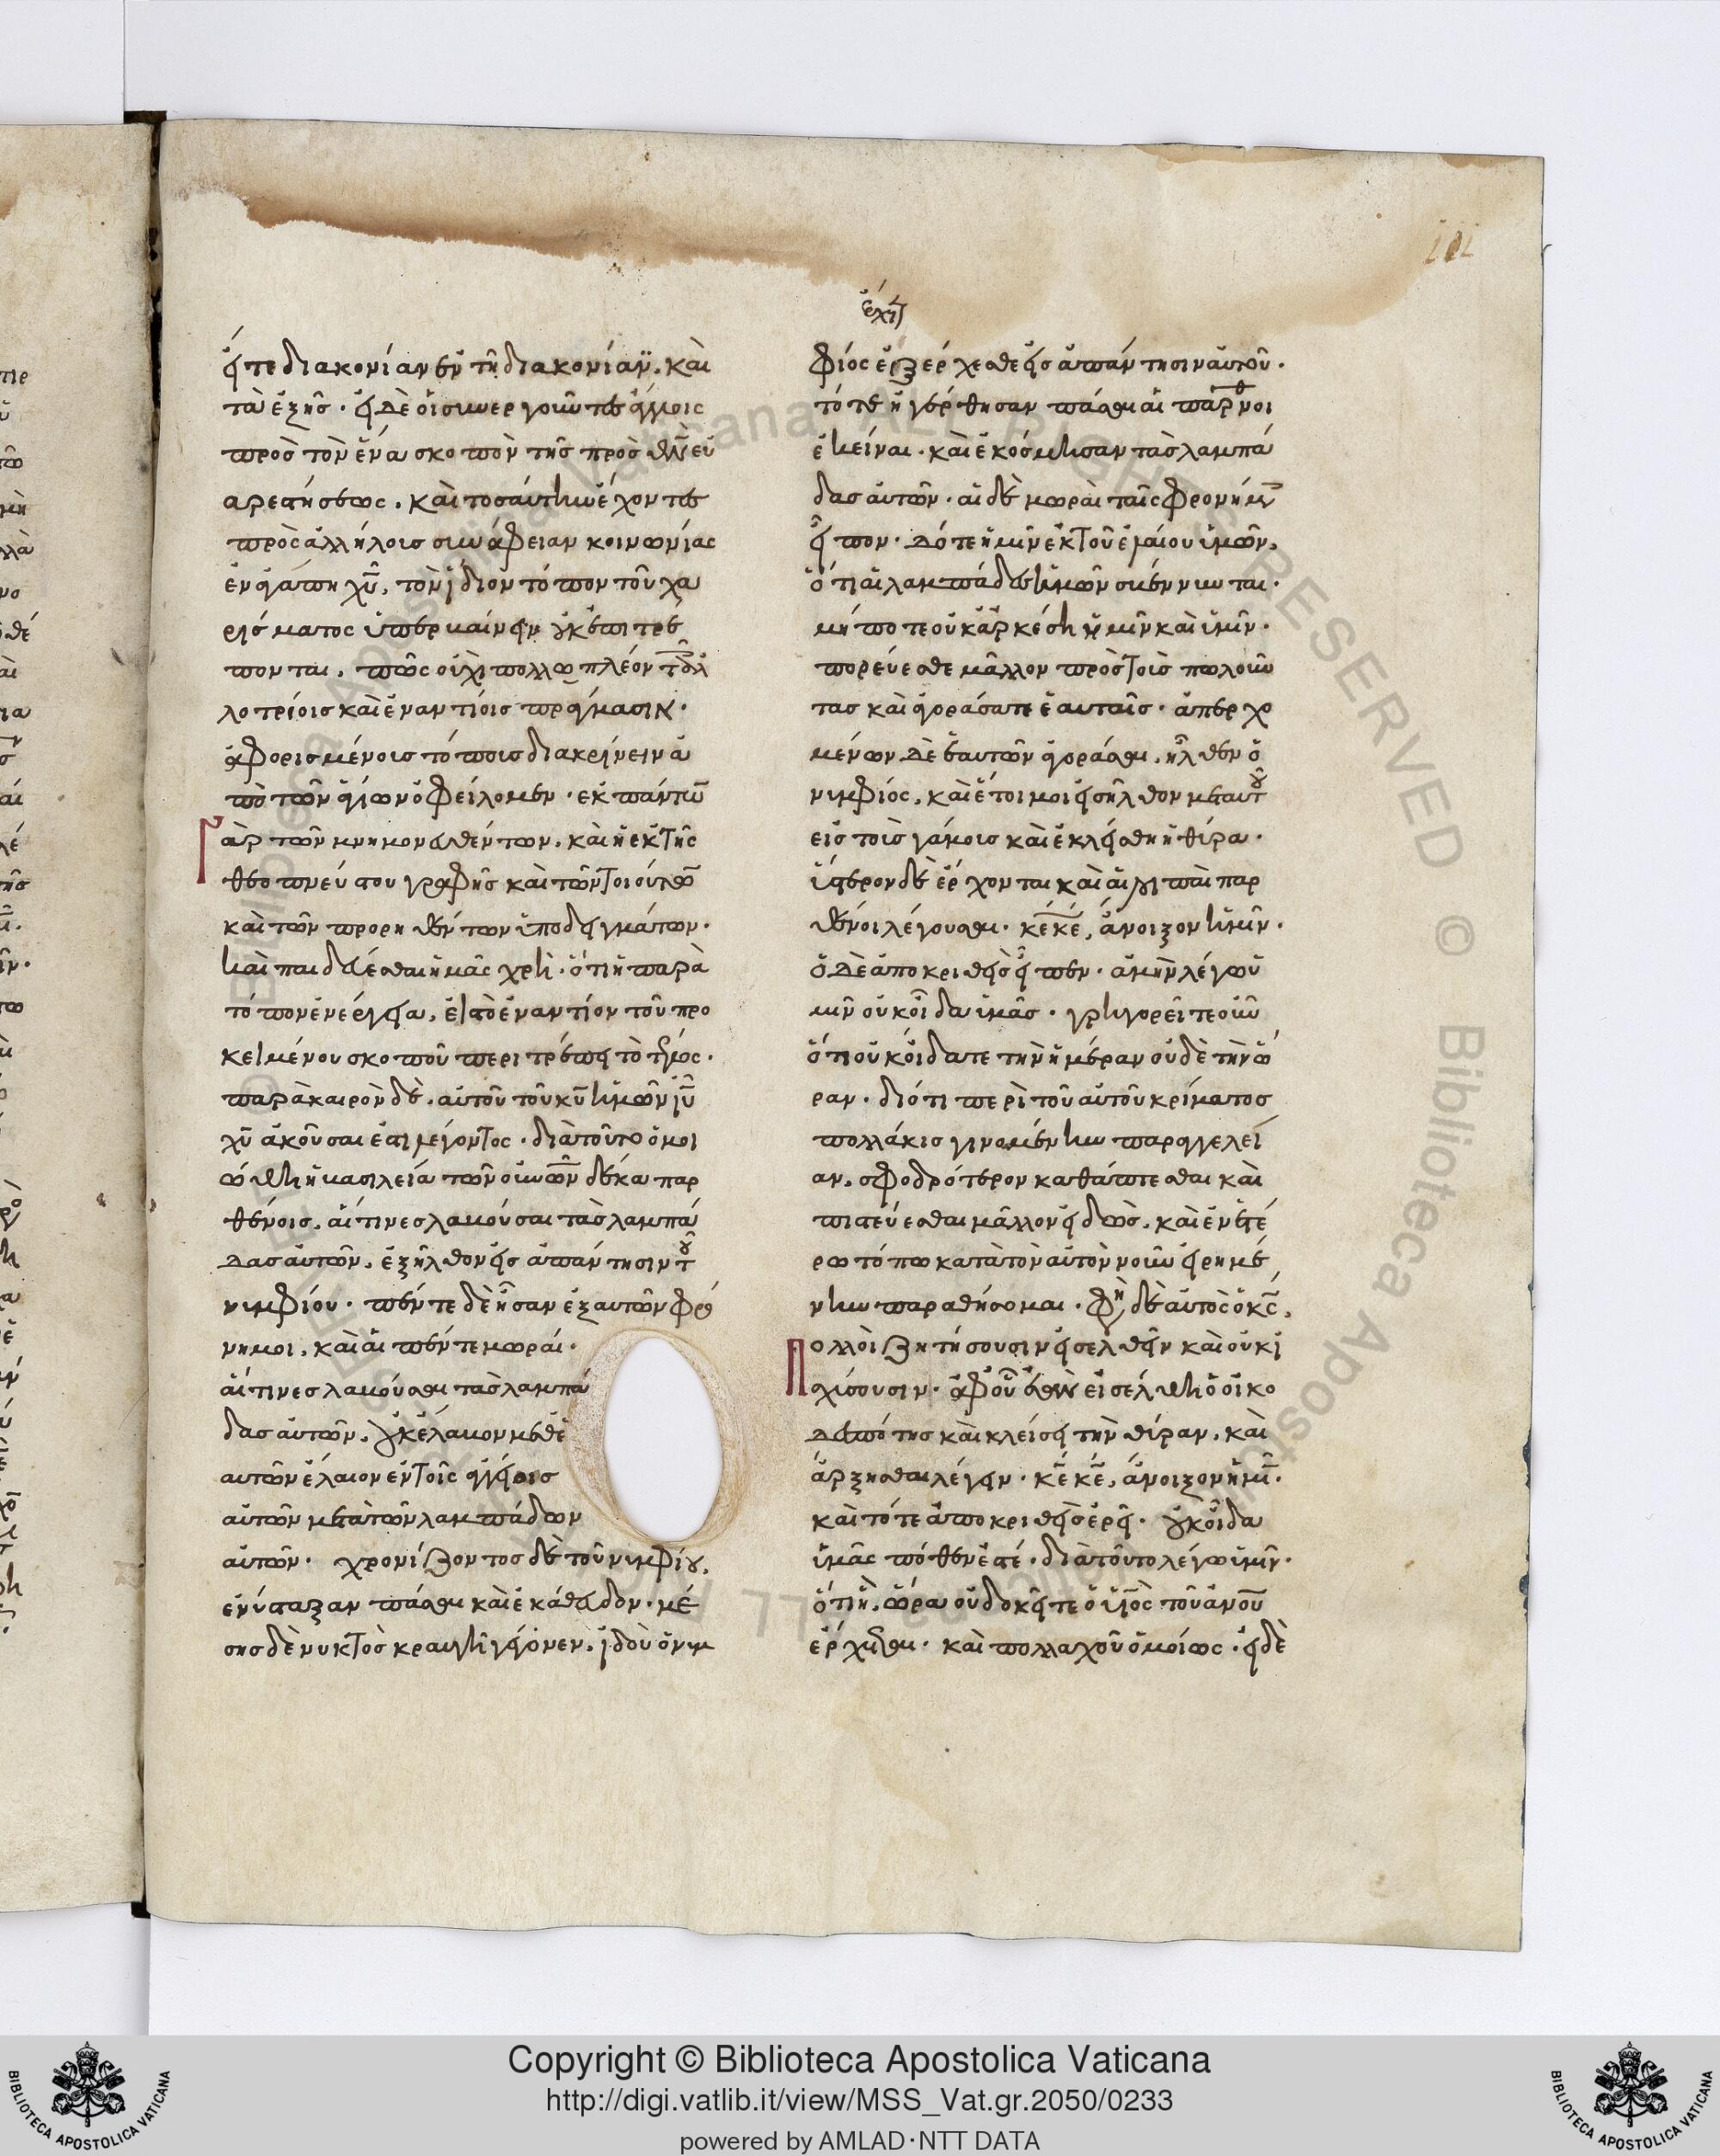 εἴτε διακονίαν ἐν τῆ διακονία. καὶ
τὰ ἑξῆς. εἰ δὲ οἱ συνεργοῦντες ἀλλήλοις
πρὸς τὸν ἕνα σκοπὸν τῆς πρὸς θν εὐ
αρεστήσεως. καὶ τοσαύτην ἔχοντες
πρὸς ἀλλήλους συνάφειαν κοινωνίας
ἐν ἀγάπη χυ, τὸν ἴδιον τόπον τοῦ χα
ρίσματος ὑπερβαίνειν οὐκ ἐπιτρέ
πονται, πῶς οὐχὶ πολλω πλέον τοῖς ἀλ
λοτρίοις καὶ ἐναντίοις πράγμασιν.
ἀφορισμένοις τόποις διακρίνειν ἀ
πὸ τῶν ἁγίων ὀφείλομεν. ἐκ πάντων
γὰρ τῶν μνημονευθέντων, καὶ ἐκ τῆς
θεοπνεύστου γραφῆς καὶ τῶν τοιούτων
καὶ τῶν προρηθέντων ὑποδειγμάτων.
καὶ παιδεύεσθαι ἡμᾶς χρὴ. ὅτι ἡ παρὰ
τόπον ἐνέργεια, εἰς τὸ ἐναντίον τοῦ προ
κειμένου σκοποῦ περιτρέπει τὸ τέλος.
παρὰ καιρὸν δὲ. αὐτοῦ τοῦ κυ ἡμῶν ιυ
χυ ἀκοῦσαι ἔστι λέγοντος. διὰ τοῦτο ὁμοι
ώθη ἡ βασιλεία τῶν οὐνῶν δέκα παρ
θένοις, αἵτινες λαβοῦσαι τὰς λαμπά
δας αὐτῶν, ἐξῆλθον εἰς ἀπάντησιν τοῦ
νυμφίου. πέντε δὲ ἦσαν ἐξ αυτῶν φρό
νιμοι, καὶ αἱ πέντε μωραί.
αἵτινες λαβοῦσαι τὰς λαμπά
δας αὐτῶν, οὐκ ἔλαβον μεθ ἑ
αυτῶν ἔλαιον ἐν τοῖς ἀγγείοις
αὐτῶν μετὰ τῶν λαμπάδων
αὐτῶν. χρονίζοντος δὲ τοῦ νυμφίου,
ἐνύσταξαν πᾶσαι καὶ ἐκάθευδον. μέ
σης δὲ νυκτὸς κραυγὴ γέγονεν, ἰδοὺ ὁ νυμ
φίος ἐξέρχεσθε εἰς ἀπάντησιν αὐτοῦ.
τότε ἠγέρθησαν πᾶσαι αἱ παρθένοι
ἐκείναι. καὶ ἐκόσμησαν τὰς λαμπά
δας αὐτῶν. αἱ δὲ μωραὶ ταῖς φρονήμοις
εἶπον. δότε ἡμῖν ἐκ τοῦ ἐλαίου ὑμῶν,
ὅτι αἱ λαμπάδες ἡμῶν σβέννυνται.
μήποτε οὐκ ἀρκέση ἡμῖν καὶ ὑμῖν.
πορεύεσθε μᾶλλον πρὸς τοὺς πωλοῦν
τας καὶ ἀγοράσατε ἑαυταῖς. ἀπερχο
μένων δὲ ἑαυτῶν ἀγοράσαι, ἦλθεν ὁ
νυμφίος, καὶ ἕτοιμοι εἰσῆλθον μετ αὐτοῦ
εἰς τοὺς γάμους καὶ ἐκλείσθη ἡ θύρα.
ὕστερον δὲ ἔρχονται καὶ αἱ λοιπαὶ παρ
θένοι λέγουσαι. κε κε, ἄνοιξον ἡμῖν.
ὁ δὲ ἀποκριθεὶς εἶπεν. ἀμὴν λέγω ὑ
μῖν οὐκ οἶδα ὑμᾶς. γρηγορεῖτε οὖν
ὅτι οὐκ οἴδατε τὴν ἡμέραν οὐδὲ τὴν ὥ
ραν. διότι περὶ τοῦ αὐτοῦ κρίματος
πολλάκις γινομένην παραγγελεί
αν, σφοδρότερον καθάπτεσθαι καὶ
πιστεύεσθαι μᾶλλον εἰδὼς, καὶ ἐν ἑτέ
ρω τόπω κατὰ τὸν αὐτὸν νοῦν εἰρημέ
νην παραθήσομαι. φη δὲ αὐτὸς ὁ κς,
Πολλοὶ ζητήσουσιν εἰσελθεῖν καὶ οὐκ ἰ
σχύσουσιν. ἀφ οὗ ἂν εἰσέλθη ὁ οἰκο
δεσπότης καὶ κλείση τὴν θύραν, καὶ
ἄρξησθαι λέγειν. κε κε, ἄνοιξον ἡμῖν.
καὶ τότε ἀποκριθεὶς ἐρεῖ. οὐκ οἶδα
ὑμᾶς πόθεν ἐστέ. διὰ τοῦτο λέγω ὑμῖν.
ὅτι ἧ ὥρα οὐ δοκεῖτε ὁ υἱὸς τοῦ ἀνου
ἔρχεται. καὶ πολλαχοῦ ὁμοίως. εἰ δὲ
BIBLIOTECA APOSTOLICA VATICANA
Copyright © Biblioteca Apostolica Vaticana
http://digi.vatlib.it/view/MSS_Vat.gr.2050/0233
powered by AMLAD·NTT DATA
BIBLIOTECA APOSTOLICA VATICANA